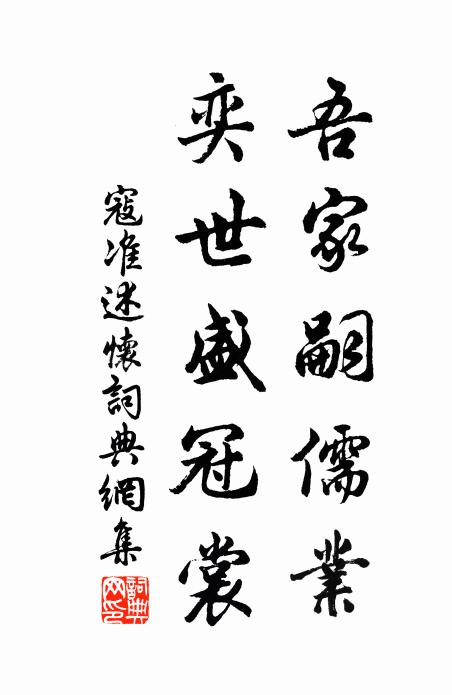 吾家嗣儒業
奕世盛冠裳
寇准述懷詞典網集
詞典网印